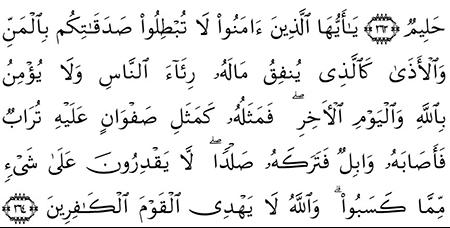 حَلِيمٌ ﴿٢٦٣﴾ يَـٰٓأَيُّهَا ٱلَّذِينَ ءَامَنُوا۟ لَا تُبْطِلُوا۟ صَدَقَـٰتِكُم بِٱلْمَنِّ
وَٱلْأَذَىٰ كَٱلَّذِى يُنفِقُ مَالَهُۥ رِئَآءَ ٱلنَّاسِ وَلَا يُؤْمِنُ
بِٱللَّهِ وَٱلْيَوْمِ ٱلْـَٔاخِرِ ۖ فَمَثَلُهُۥ كَمَثَلِ صَفْوَانٍ عَلَيْهِ تُرَابٌ
فَأَصَابَهُۥ وَابِلٌ فَتَرَكَهُۥ صَلْدًا ۖ لَّا يَقْدِرُونَ عَلَىٰ شَىْءٍ
مِّمَّا كَسَبُوا۟ ۗ وَٱللَّهُ لَا يَهْدِى ٱلْقَوْمَ ٱلْكَـٰفِرِينَ ﴿٢٦٤﴾